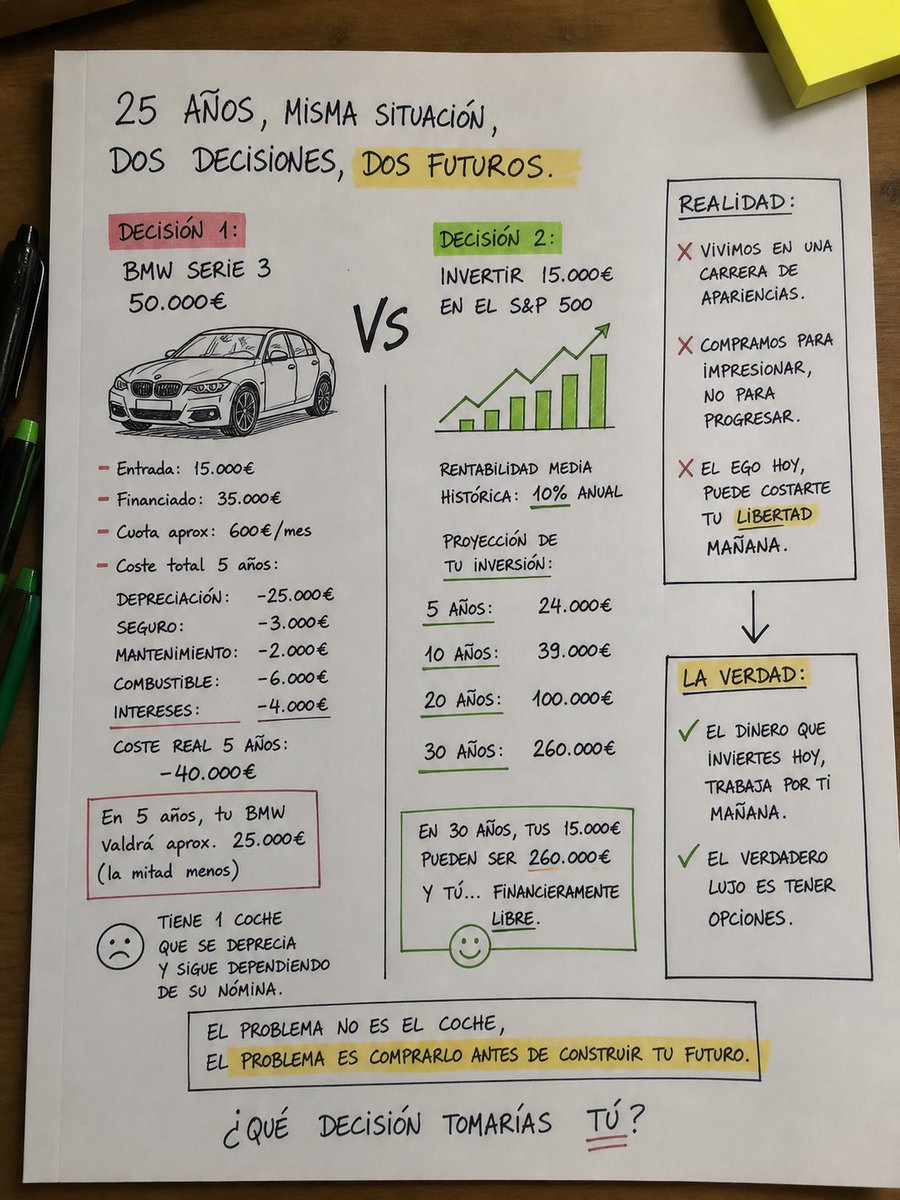 25 AÑOS, MISMA SITUACIÓN,
DOS DECISIONES, DOS FUTUROS.
DECISIÓN 1:
BMW SERIE 3
50.000€
- Entrada: 15.000€
- Financiado: 35.000€
- Cuota aprox: 600€/mes
- Coste total 5 años:
DEPRECIACIÓN: -25.000€
SEGURO: -3.000€
MANTENIMIENTO: -2.000€
COMBUSTIBLE: -6.000€
INTERESES: -4.000€
COSTE REAL 5 AÑOS:
-40.000€
En 5 años, tu BMW
valdrá aprox. 25.000€
(la mitad menos)
TIENE 1 COCHE
QUE SE DEPRECIA
Y SIGUE DEPENDIENDO
DE SU NÓMINA.
VS
DECISIÓN 2:
INVERTIR 15.000€
EN EL S&P 500
RENTABILIDAD MEDIA
HISTÓRICA: 10% ANUAL
PROYECCIÓN DE
TU INVERSIÓN:
5 AÑOS: 24.000€
10 AÑOS: 39.000€
20 AÑOS: 100.000€
30 AÑOS: 260.000€
EN 30 AÑOS, TUS 15.000€
PUEDEN SER 260.000€
Y TÚ... FINANCIERAMENTE
LIBRE.
REALIDAD:
✗ VIVIMOS EN UNA
CARRERA DE
APARIENCIAS.
✗ COMPRAMOS PARA
IMPRESIONAR,
NO PARA
PROGRESAR.
✗ EL EGO HOY,
PUEDE COSTARTE
TU LIBERTAD
MAÑANA.
LA VERDAD:
✓ EL DINERO QUE
INVIERTES HOY,
TRABAJA POR TI
MAÑANA.
✓ EL VERDADERO
LUJO ES TENER
OPCIONES.
EL PROBLEMA NO ES EL COCHE,
EL PROBLEMA ES COMPRARLO ANTES DE CONSTRUIR TU FUTURO.
¿QUÉ DECISIÓN TOMARÍAS TÚ?